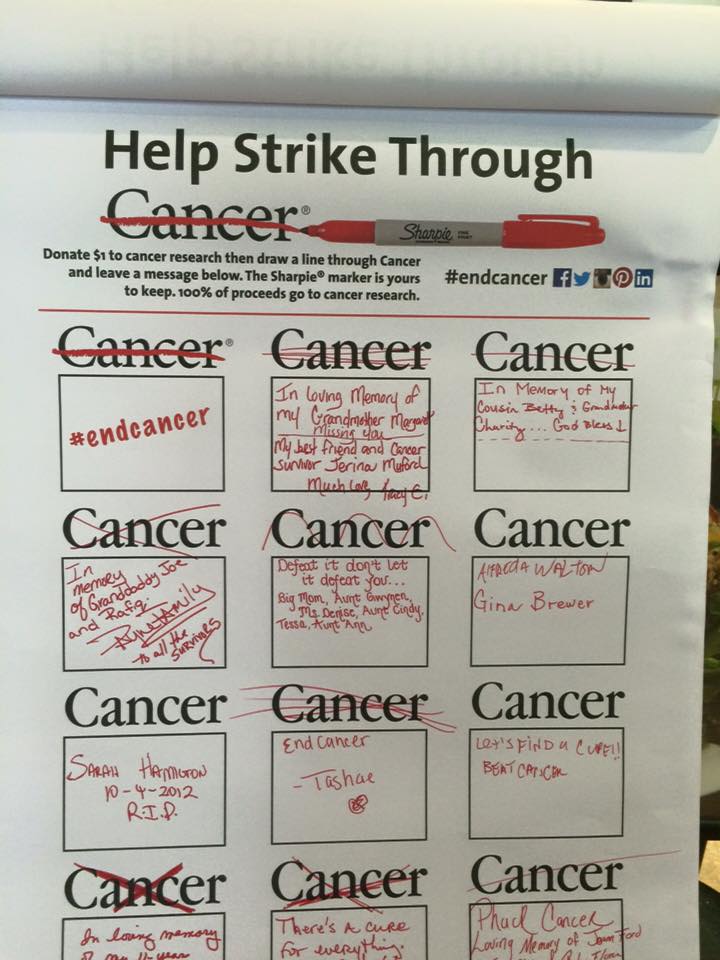 Help Strike Through
Cancer®
Sharpie FINE POINT
Donate $1 to cancer research then draw a line through Cancer
and leave a message below. The Sharpie® marker is yours
to keep. 100% of proceeds go to cancer research.
#endcancer
Cancer®
#endcancer
Cancer
In Loving Memory of
my Grandmother Margaret
Missing you
My best friend and Cancer
survivor Jerina
Much Love, Tracy E.
Cancer
In Memory of My
Cousin Betty & Grandmother
Charity... God Bless
Cancer
In
memory
of Granddaddy Joe
and
Family
to all the
survivors
Cancer
Defeat it don't let
it defeat you...
Big Mom, Aunt Gwynen,
Ms Denise, Aunt Cindy,
Tessa, Aunt Ann
Cancer
Alfreda Walton
Gina Brewer
Cancer
SARAH HAMILTON
10-4-2012
R.I.P.
Cancer
End Cancer
- Tashae
Cancer
LET'S FIND a CURE!!
BEAT CANCER
Cancer
In loving memory
of my
Cancer
There's a cure
for everything.
Cancer
Phuck Cancer
Loving Memory of Joann Ford